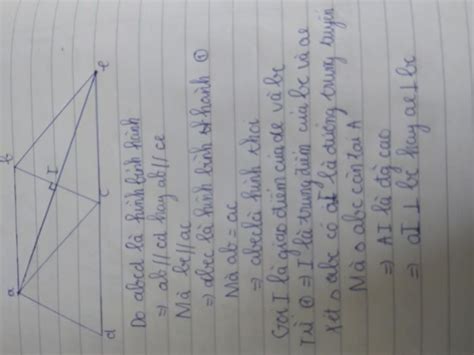 a
b
I
e
d
c
Do abcd là hình bình hành
⇒ ab // cd hay ab // ce
Mà be // ac
⇒ abec là hình bình hành ①
Mà ab = ac
⇒ abec là hình thoi
Gọi I là giao điểm của ae và bc
Từ ① ⇒ I là trung điểm của bc và ae
Xét △ abc có aI là đường trung tuyến
Mà △ abc cân tại A
⇒ AI là đg cao
⇒ aI ⊥ bc hay ae ⊥ bc